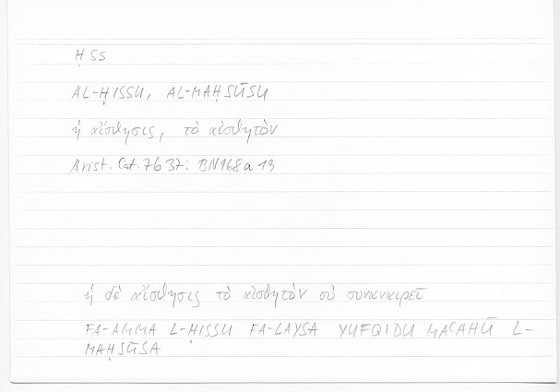 ḤSS
AL-ḤISSU, AL-MAḤSŪSU
ἡ αἴσθησις, τὸ αἰσθητὸν
Arist. Cat. 7b37: BN168a13
ἡ δὲ αἴσθησις τὸ αἰσθητὸν οὐ συναναιρεῖ
FA-AMMA L-ḤISSU FA-LAYSA YUFQIDU MACAHŪ L-
MAḤSŪSA